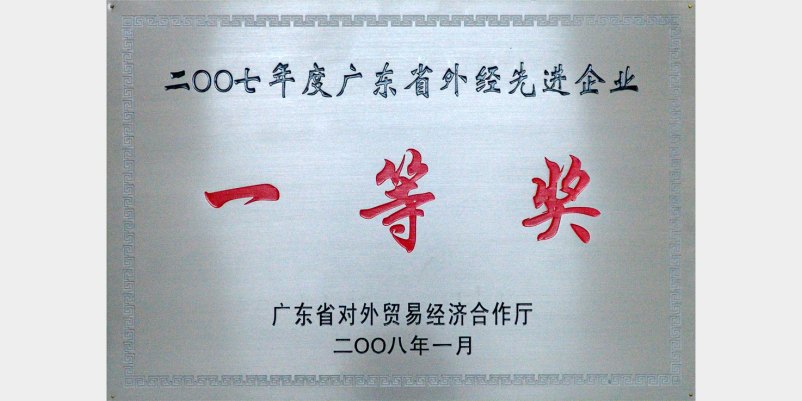 二〇〇七年度广东省外经先进企业
一等奖
广东省对外贸易经济合作厅
二〇〇八年一月